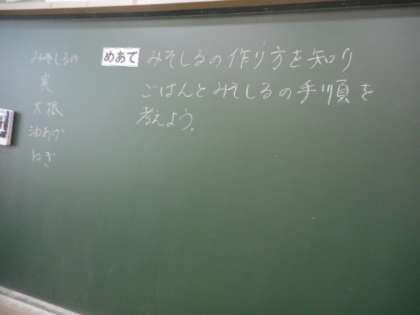 めあて みそしるの作り方を知り
ごはんとみそしるの手順を
考えよう。
みそしるの
実
大根
油あげ
ねぎ